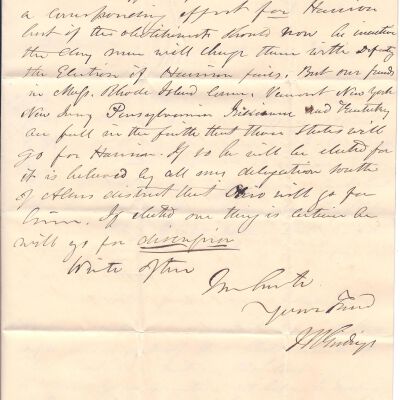 a corresponding effort for Harrison
but if the abolitionists should now be inactive
the day man will charge them with Defeating
the Election of Harrison first. But our friends
in Mass. Rhode Island Conn, Vermont New York
New Jersey Pennsylvania Indiana and Kentucky
are full in the faith that those States will
go for Harrison. If so he will be elected for
it is believed by all our delegation south
of Allens district that Ohio will go for
him. If elected one thing is certain he
will go for discussion
Write often
In haste
Yours Truly
J R Giddings